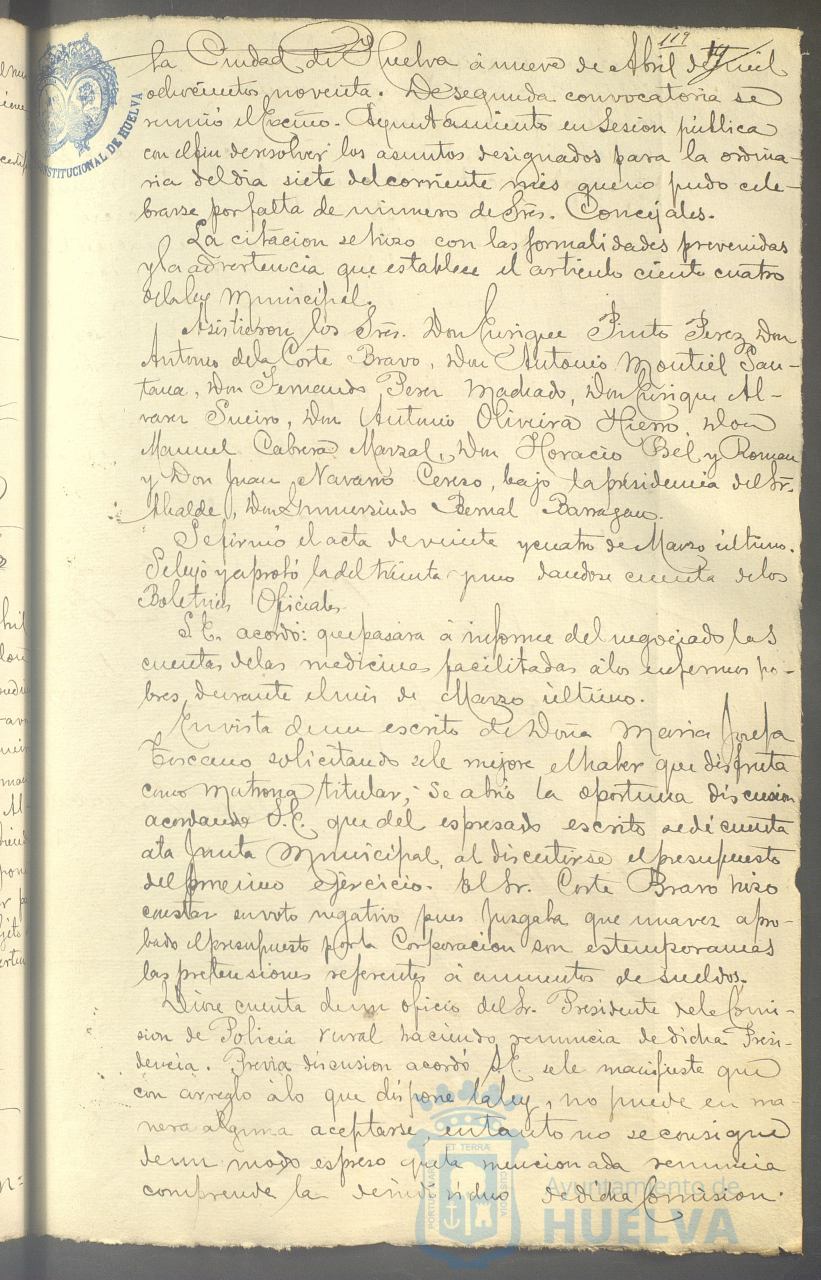 119
En la Ciudad de Huelva á nueve de Abril de mil
ochocientos noventa. De segunda convocatoria se
reunió el Excmo. Ayuntamiento en Sesion pública
con el fin de resolver los asuntos designados para la ordina-
ria del dia siete del corriente mes que no pudo cele-
brarse por falta de número de Sres. Concejales.
La citacion se hizo con las formalidades prevenidas
y la advertencia que establece el articulo ciento cuatro
de la ley Municipal.
Asistieron los Sres. Don Enrique Pinto Perez, Don
Antonio de la Corte Bravo, Don Antonio Montiel San-
tana, Don Fernando Perez Machado, Don Enrique Al-
varez Sueiro, Don Antonio Oliveira Hierro, Don
Manuel Cabrera Marzal, Don Horacio Bel y Roman
y Don Juan Navarro Cerezo, bajo la presidencia del Sr.
Alcalde, Don Gumersindo Bernal Barragan.
Se firmó el acta de veinte y cuatro de Marzo último.
Se leyó y aprobó la del treinta y uno dandose cuenta de los
Boletines Oficiales.
S.E. acordó: que pasára á informe del negociado las
cuentas de las medicinas facilitadas á los enfermos po-
bres, durante el mes de Marzo último.
En vista de un escrito de Doña Maria Josefa
Toscano solicitando se le mejore el haber que disfruta
como Matrona titular, se abrió la oportuna discusion
acordando S.E. que del espresado escrito se dé cuenta
á la Junta Municipal, al discutirse el presupuesto
del procsimo ejercicio. El Sr. Corte Bravo hizo
constar su voto negativo pues juzgaba que una vez apro-
bado el presupuesto por la Corporacion son estemporaneas
las pretensiones referentes á aumentos de sueldos.
Diose cuenta de un oficio del Sr. Presidente de la Comi-
sion de Policia rural haciendo renuncia de dicha Presi-
dencia. Previa discusion acordó S.E. se le manifieste que
con arreglo á lo que dispone la ley, no puede en ma-
nera alguna aceptarse, en tanto no se consigne
de un modo espreso que la mencionada renuncia
comprende la de individuo de dicha Comision.
CONSTITUCIONAL DE HUELVA
ET TERRA
Ayuntamiento de
HUELVA